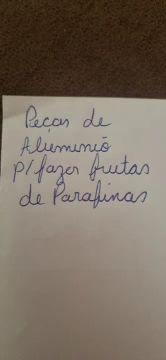 Peças de
Aluminio
p/ fazer frutas
de Parafinas